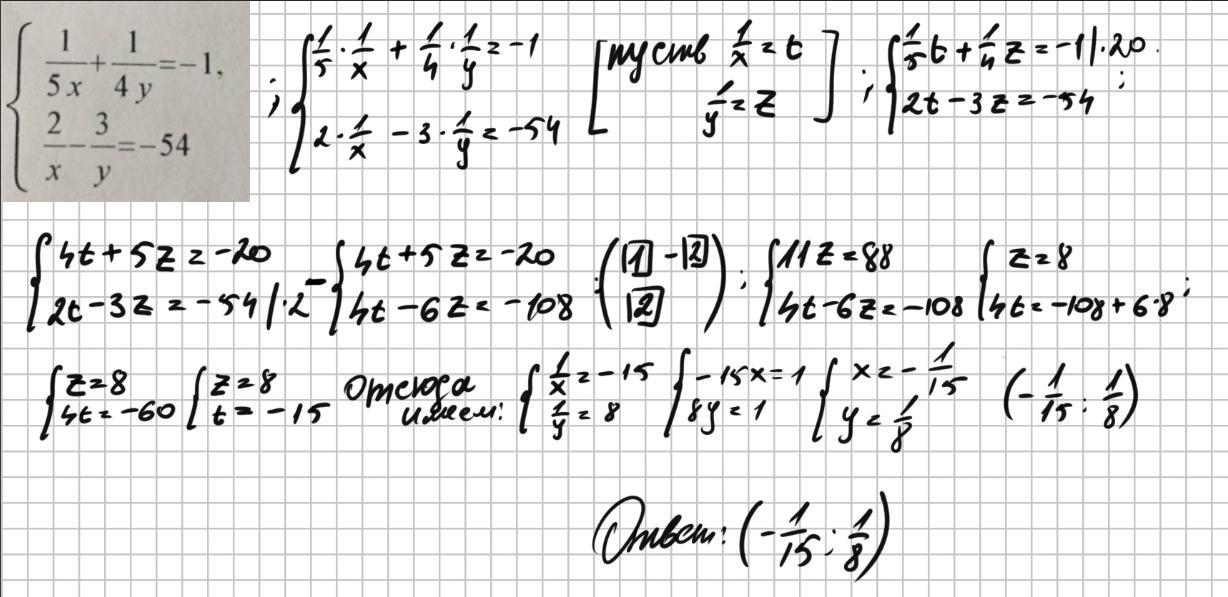 { 1/(5x) + 1/(4y) = -1, 2/x - 3/y = -54 ; { 1/5 · 1/x + 1/4 · 1/y = -1 2 · 1/x - 3 · 1/y = -54 [ пусть 1/x = t 1/y = z ] ; { 1/5 t + 1/4 z = -1 | · 20 2t - 3z = -54 ;
{ 4t + 5z = -20 2t - 3z = -54 | · 2 - { 4t + 5z = -20 4t - 6z = -108 : ( |1| - |2| |2| ) ; { 11z = 88 4t - 6z = -108 { z = 8 4t = -108 + 6·8 ;
{ z = 8 4t = -60 { z = 8 t = -15 Отсюда имеем: { 1/x = -15 1/y = 8 { -15x = 1 8y = 1 { x = -1/15 y = 1/8 (-1/15 ; 1/8)
Ответ: (-1/15 ; 1/8)